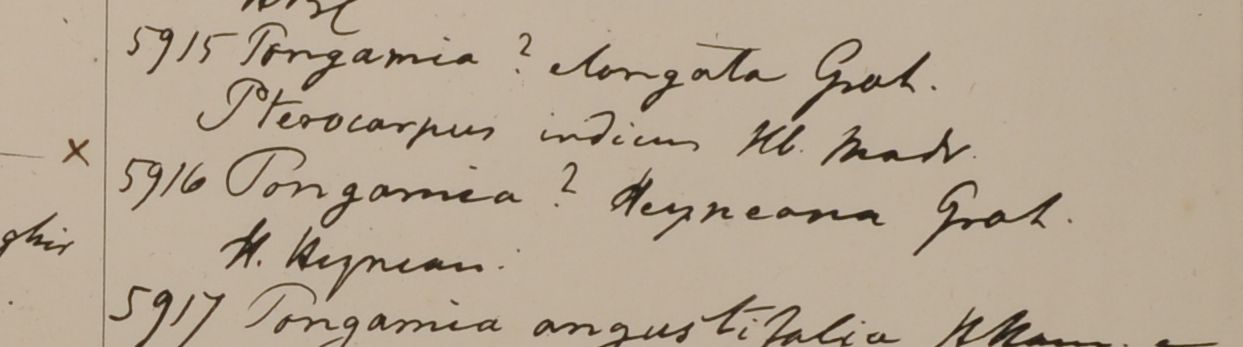 5915 Pongamia ? elongata Grah.
Pterocarpus indicus Hb. Madr.
× 5916 Pongamia ? Heyneana Grah.
H. Heynean.
5917 Pongamia angustifolia